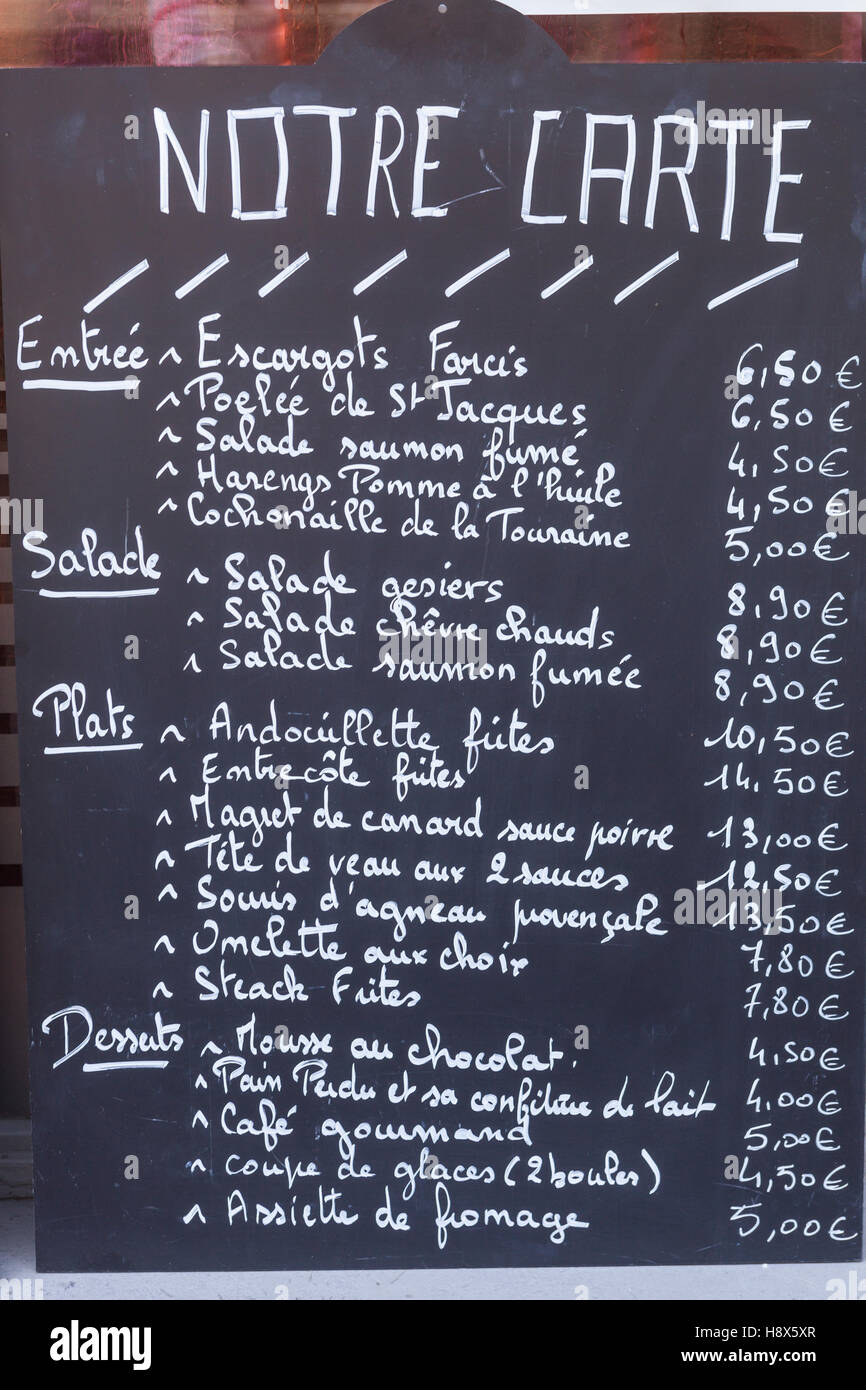 NOTRE CARTE
Entrée ~ Escargots Farcis 6,50 €
~ Poelée de St Jacques 6,50 €
~ Salade saumon fumé 4,50 €
~ Harengs Pomme à l'huile 4,50 €
~ Cochonaille de la Touraine 5,00 €
Salade ~ Salade gesiers 8,90 €
~ Salade chêvre chauds 8,90 €
~ Salade saumon fumée 8,90 €
Plats ~ Andouillette frites 10,50 €
~ Entrecôte frites 14,50 €
~ Magret de canard sauce poivre 13,00 €
~ Tête de veau aux 2 sauces 12,50 €
~ Souris d'agneau provençale 13,50 €
~ Omelette aux choix 7,80 €
~ Steack Frites 7,80 €
Desserts ~ Mousse au chocolat. 4,50 €
~ Pain Perdu et sa confiture de lait 4,00 €
~ Café gourmand 5,00 €
~ coupe de glaces (2 boules) 4,50 €
~ Assiette de fromage 5,00 €
alamy stock photo
H8X5XR
www.alamy.com